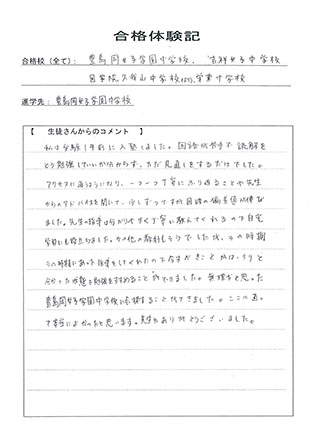 合格体験記
合格校（全て）： 豊島岡女子学園中学校、吉祥女子中学校
國學院久我山中学校(ST)、学業中学校
進学先： 豊島岡女子学園中学校
【 生徒さんからのコメント 】
私は受験1年前に入塾しました。国語が苦手で読解を
どう勉強していいか分からず、ただ見直しをするだけでした。
アクセスに通うようになり、一つ一つ丁寧にふり返ることや先生
からのアドバイスを聞いて、少しずつですが国語の偏差値が伸び
ました。先生の指導は分かりやすく丁寧に教えてくれるので自宅
学習にも役立ちました。その他の教科もそうでしたが、その時期
その時期にあった指導をしてくれたので今すべきことがはっきりと
分かった状態で勉強をすすめることができました。無理かと思った
豊島岡女子学園中学校に合格することができました。ここに通っ
て本当によかったと思います。先生ありがとうございました。